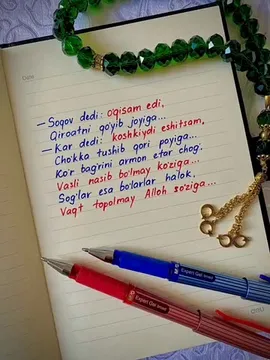 — Soqov dedi: o'qisam edi,
Qiroatni qo'yib joyiga...
— Kar dedi: koshkiydi eshitsam,
Cho'kka tushib qori poyiga...
Ko'r bag'rini armon etar chog'.
Vasli nasib bo'lmay ko'ziga...
Sog'lar esa bo'larlar halok,
Vaqt topolmay Alloh so'ziga...
Expert Gel
Expert Gel